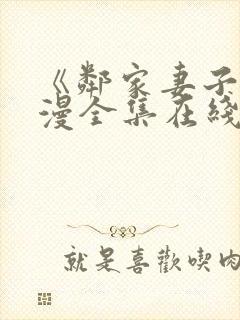 《鄰家妻子
漫全集在綫
就是喜歡喫肉